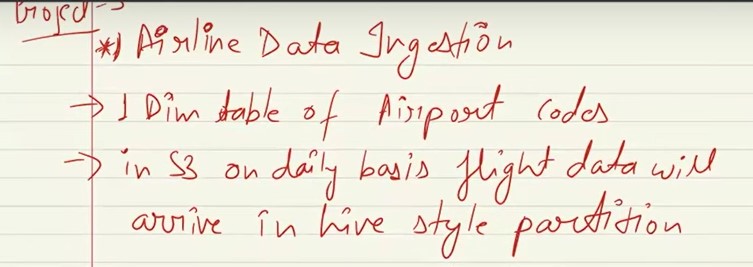 Project-
*) Airline Data Ingestion
→ 1 Dim table of Airport codes
→ in S3 on daily basis flight data will
arrive in hive style partition